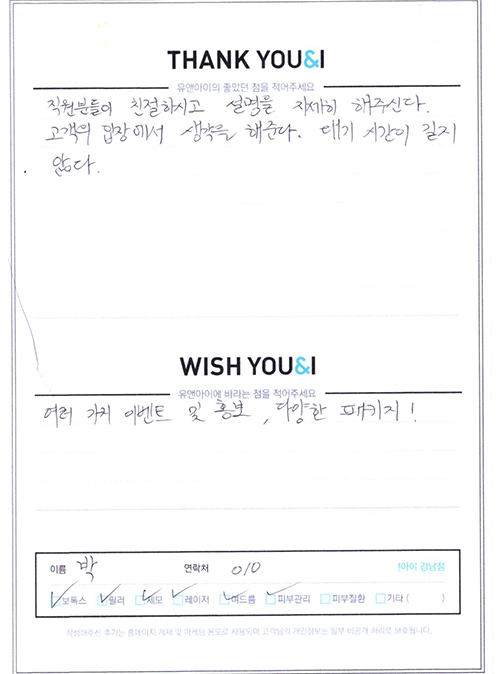 THANK YOU&I
유앤아이의 좋았던 점을 적어주세요
직원분들이 친절하시고 설명을 자세히 해주신다.
고객의 입장에서 생각을 해준다. 대기 시간이 길지
않다.
WISH YOU&I
유앤아이에 바라는 점을 적어주세요
여러 가지 이벤트 및 홍보, 다양한 패키지!
이름 박 연락처 010 !아이 강남점
보톡스 필러 제모 레이저 여드름 피부관리 피부질환 기타 ( )
작성해주신 후기는 홈페이지 게재 및 마케팅 용도로 사용되며 고객님의 개인정보는 일부 비공개 처리로 보호됩니다.